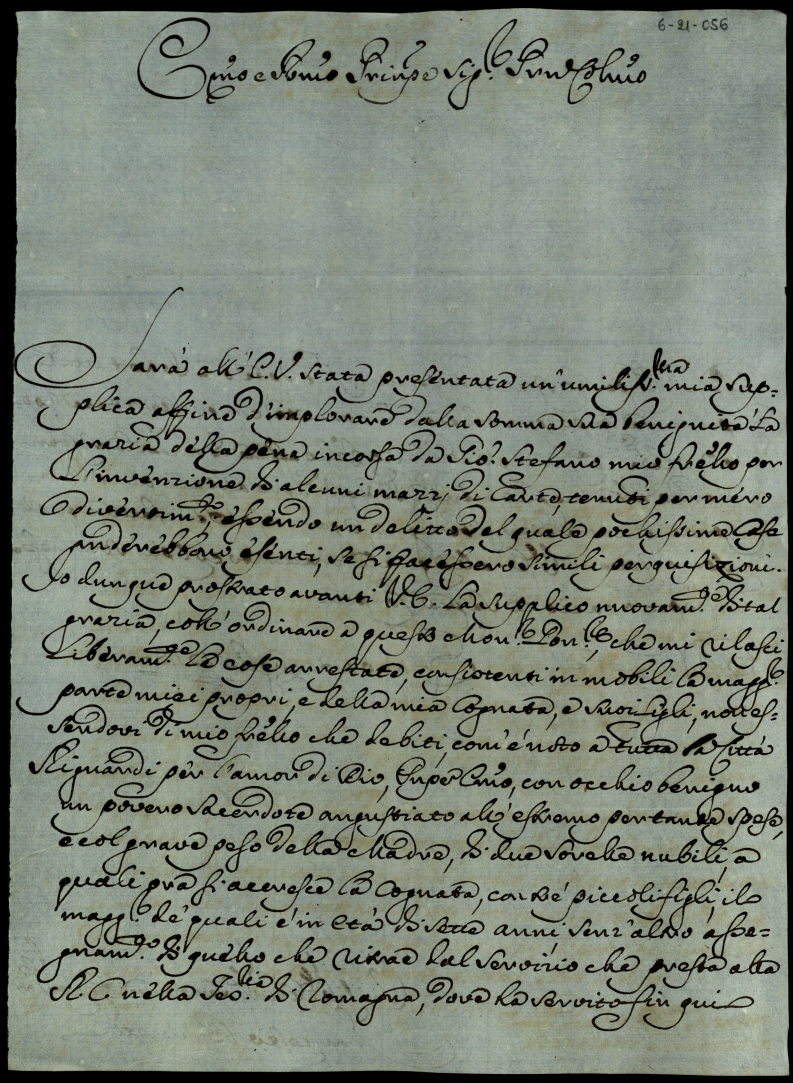 6-21-056
Emo e Rmo Prinpe Sig.r Prñ Colmo
Sarà all'E.V. stata presentata un'umiliss.ma mia sup-
plica affine d'implorare dalla somma sua benignità la
grazia della pena incorsa da Gio: Stefano mio frello per
l'invenzione di alcuni mazzj di Carte, tenuti per mero
divertim.to, essendo un delitto del quale pochissime Case
anderebbono esenti, se si facessero simili perquisizioni.
Io dunque prostrato avanti V.E. la supplico nuovam.te di tal
grazia, coll'ordinare a questo Mon.r che mi rilasci
liberam.te le cose arrestate, consistenti in mobili la magg.r
parte miei propri, e della mia Cognata, e suoi figli, non es-
sendovi di mio frello che debiti, com'è noto a tutta la Città
Riguardi per l'amor di Dio, Emo, con occhio benigno
un povero sacerdote angustiato all'estremo per tante spese,
e col grave peso della Madre, di due sorelle nubili, a
quali si accresce la Cognata, con piccoli figli, il
magg.r de' quali è in età di sette anni, senz'altro asse-
gnam.to di quello che ritrae dal servizio che presta alla
R.C. nella di Romagna, dove ha servito fin qui